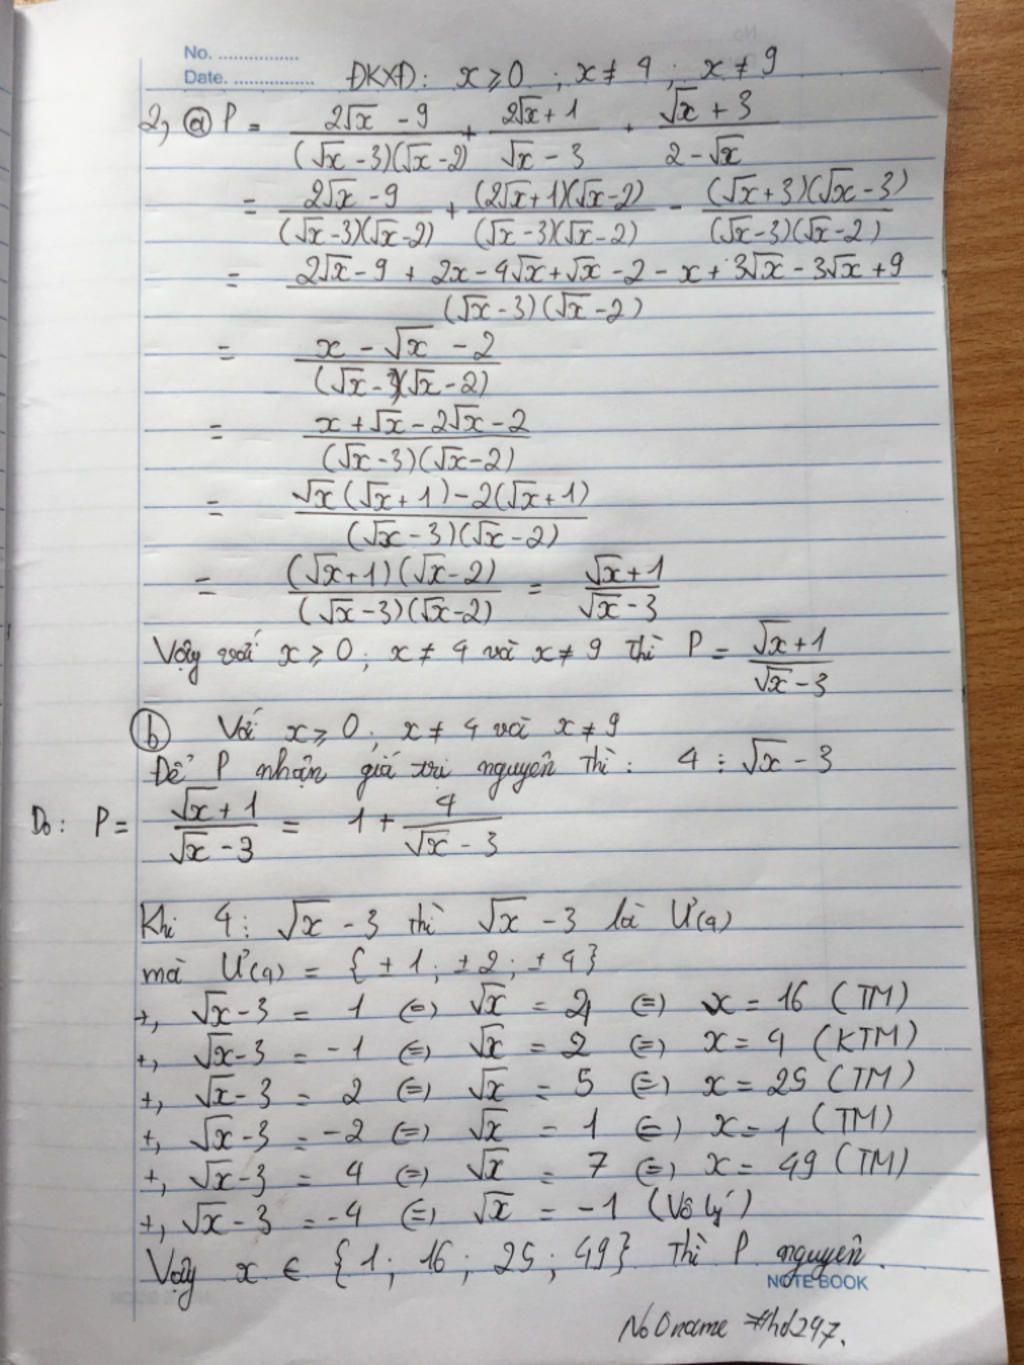 No. ................
Date. ................
ĐKXĐ: x ≥ 0 ; x ≠ 4 ; x ≠ 9
2, ⓐ P = (2√x - 9)/((√x - 3)(√x - 2)) + (2√x + 1)/(√x - 3) + (√x + 3)/(2 - √x)
= (2√x - 9)/((√x - 3)(√x - 2)) + ((2√x + 1)(√x - 2))/((√x - 3)(√x - 2)) - ((√x + 3)(√x - 3))/((√x - 3)(√x - 2))
= (2√x - 9 + 2x - 4√x + √x - 2 - x + 3√x - 3√x + 9)/((√x - 3)(√x - 2))
= (x - √x - 2)/((√x - 3)(√x - 2))
= (x + √x - 2√x - 2)/((√x - 3)(√x - 2))
= (√x(√x + 1) - 2(√x + 1))/((√x - 3)(√x - 2))
= ((√x + 1)(√x - 2))/((√x - 3)(√x - 2)) = (√x + 1)/(√x - 3)
Vậy với x ≥ 0 ; x ≠ 4 và x ≠ 9 thì P = (√x + 1)/(√x - 3)
ⓑ Với x ≥ 0 ; x ≠ 4 và x ≠ 9
Để P nhận giá trị nguyên thì : 4 ⋮ √x - 3
Do : P = (√x + 1)/(√x - 3) = 1 + 4/(√x - 3)
Khi 4 ⋮ √x - 3 thì √x - 3 là Ư(4)
mà Ư(4) = { ±1 ; ±2 ; ±4 }
+, √x - 3 = 1 (=) √x = 4 (=) x = 16 (TM)
+, √x - 3 = -1 (=) √x = 2 (=) x = 4 (KTM)
+, √x - 3 = 2 (=) √x = 5 (=) x = 25 (TM)
+, √x - 3 = -2 (=) √x = 1 (=) x = 1 (TM)
+, √x - 3 = 4 (=) √x = 7 (=) x = 49 (TM)
+, √x - 3 = -4 (=) √x = -1 (Vô lý)
Vậy x ∈ { 1 ; 16 ; 25 ; 49 } thì P nguyên.
NOTE BOOK
No 0name #hd247.